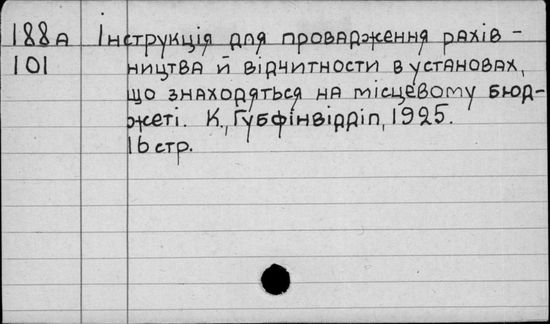 188А Інструкція для провадження рахів-
101 ництва й відчитности в установах,
що знаходяться на місцевому бюд-
жеті. К., Губфінвідділ, 1925.
16 стр.